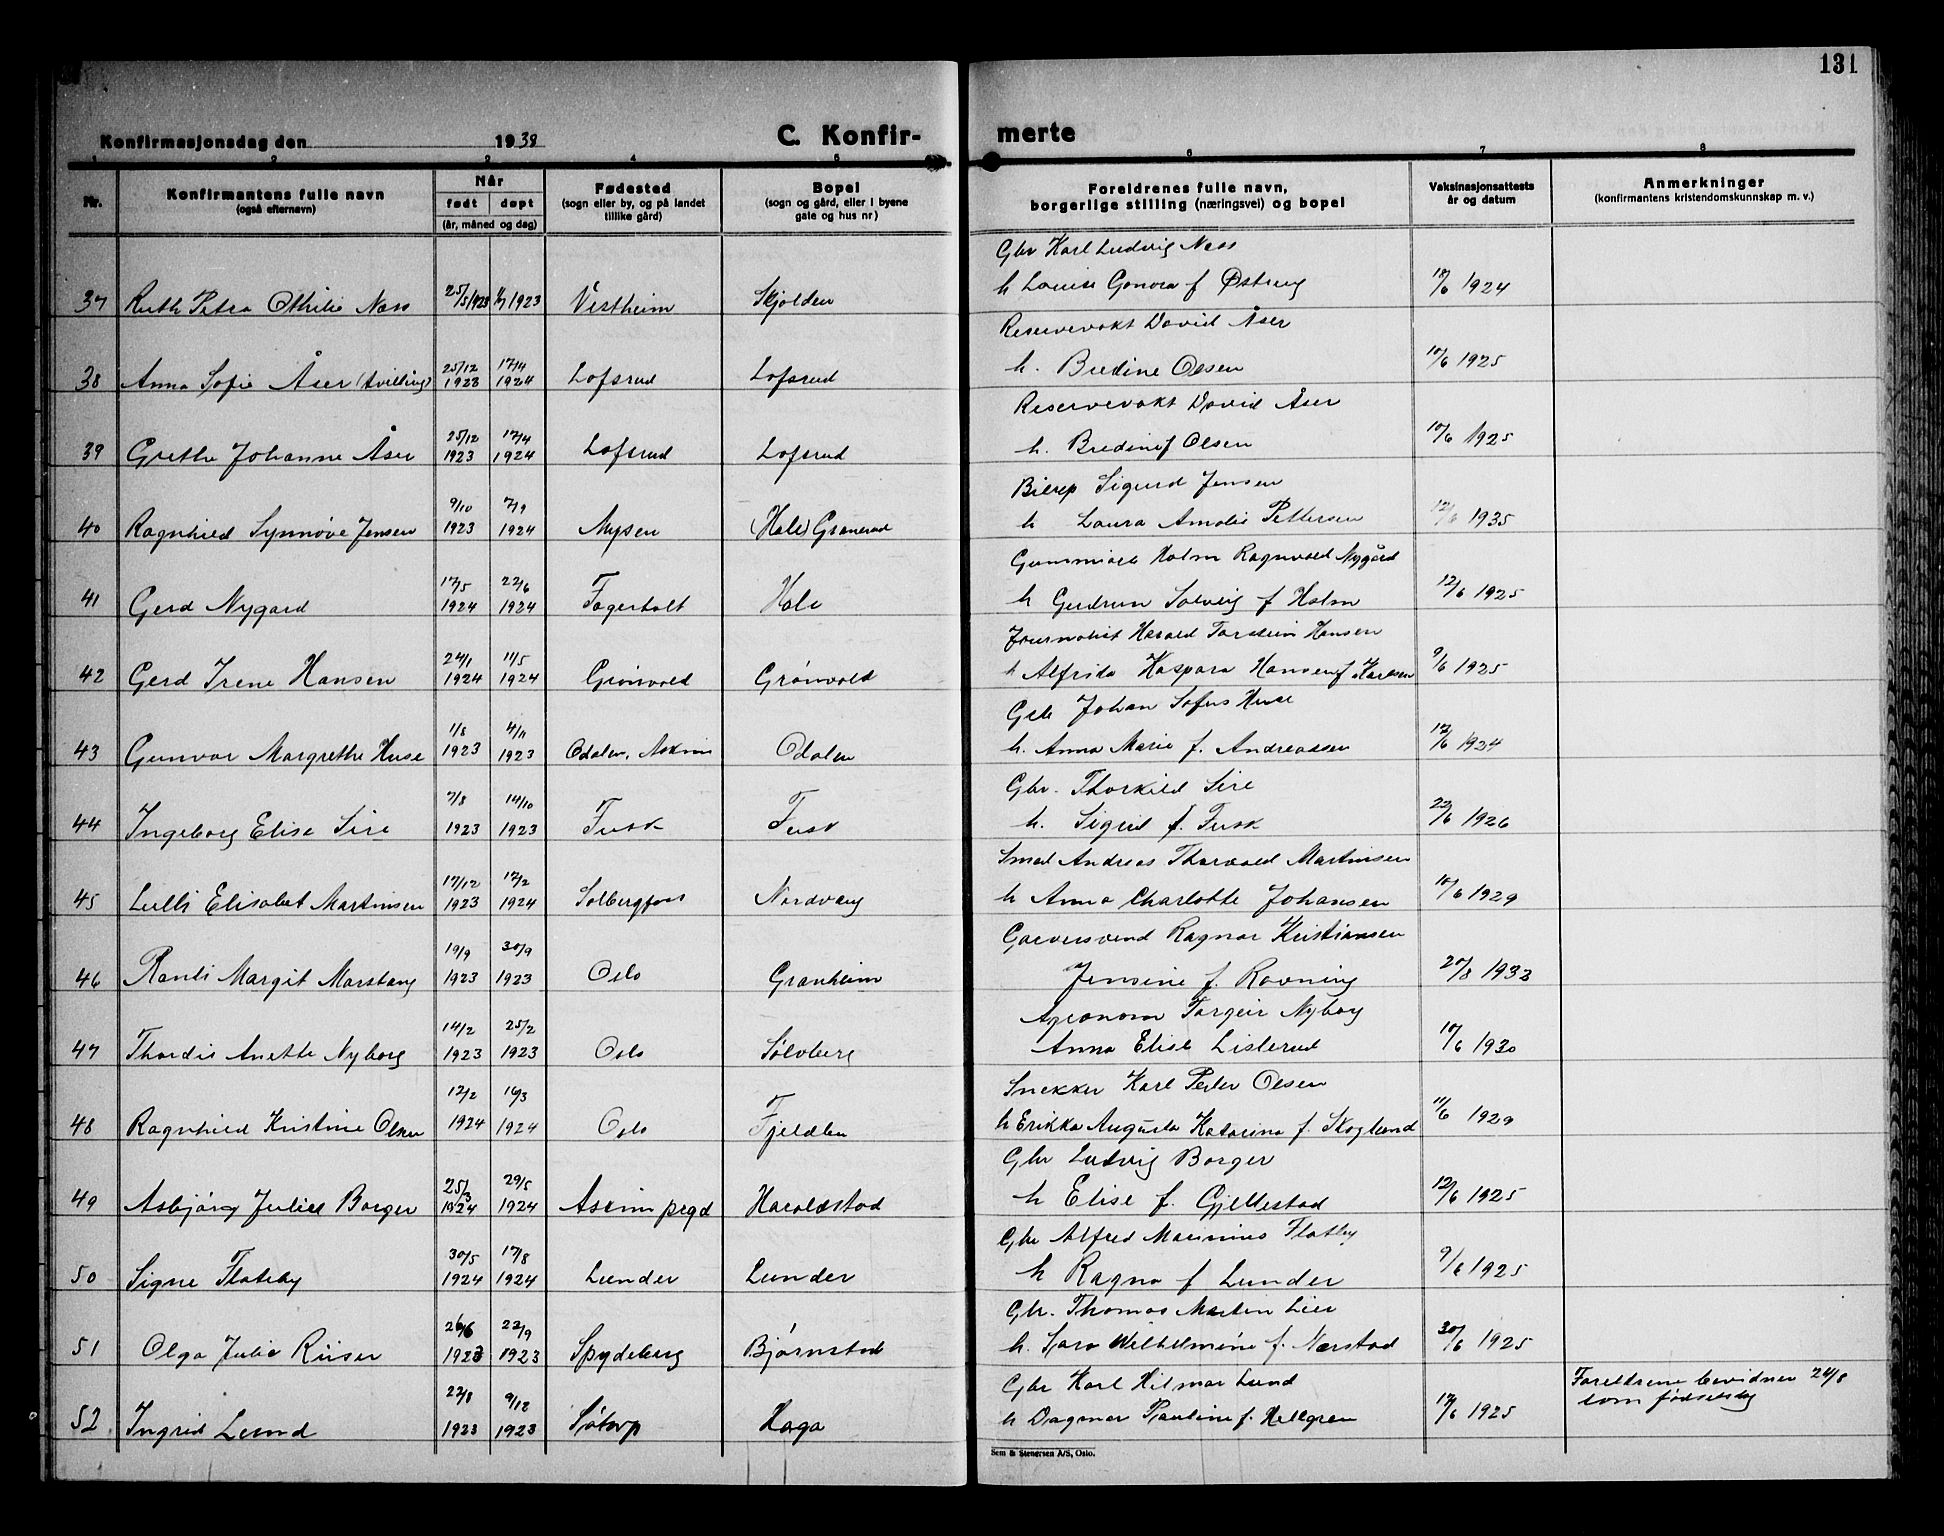 131
Konfirmasjonsdag den 1938 C. Konfir- merte
1 2 3 4 5 6 7 8
Nr. Konfirmantens fulle navn (også efternavn) Når født døpt (år, måned og dag) Fødested (sogn eller by, og på landet tillike gård) Bopel (sogn og gård, eller i byene gate og hus nr) Foreldrenes fulle navn, borgerlige stilling (næringsvei) og bopel Vaksinasjonsattests år og datum Anmerkninger (konfirmantens kristendomskunnskap m. v.)
Gbr Karl Ludvig Næss
37 Ruth Petra Othilie Næss 25/5 1923 1/7 1923 Vestheim Skjolden h Louise Gonora f Østreng 10/6 1924
Reservevakt David Åser
38 Anna Sofie Åser (tvilling) 25/12 1923 17/4 1924 Løfsrud Løfsrud h. Bredine Olsen 10/6 1925
Reservevakt David Åser
39 Grethe Johanne Åser 25/12 1923 17/4 1924 Løfsrud Løfsrud h. Bredine f Olsen 10/6 1925
Bilrep Sigurd Jensen
40 Ragnhild Synnøve Jensen 9/10 1923 7/9 1924 Mysen (Hole) Granerud h Laura Amalie Pettersen 12/6 1935
Gummiarb Holm Ragnvald Nygård
41 Gerd Nygard 17/5 1924 22/6 1924 Fagerholt Hole h Gudrun Solveig f Holm 12/6 1925
Journalist Harald Torstein Hansen
42 Gerd Irene Hansen 24/1 1924 11/5 1924 Grønvold Grønvold h Alfrida Kaspara Hansen f Karlsen 9/6 1925
Gbr Johan Sofus Huse
43 Gunvor Margrethe Huse 1/8 1923 4/11 1923 Odalen, Askim Odalen h. Anna Marie f. Andreassen 12/6 1924
Gbr. Thorkild Sire
44 Ingeborg Elise Sire 7/8 1923 14/10 1923 Fusk Fusk h. Sigrid f. Fusk 22/6 1926
Smed Andreas Thorvald Martinsen
45 Lulli Elisabet Martinsen 17/12 1923 17/2 1924 Solbergfoss Nordvang h Anna Charlotte Johansen 10/6 1929
Garversvend Ragnar Kristiansen
46 Randi Margit Morstang 19/9 1923 30/9 1923 Oslo Granheim Jensine f. Ravning 20/8 1933
Agronom Torgeir Nyborg
47 Thordis Anette Nyborg 14/2 1923 25/2 1923 Oslo Sølvberg Anna Elise Listerud 10/6 1930
Snekker Karl Peder Olsen
48 Ragnhild Kristine Olsen 12/2 1924 16/3 1924 Oslo Fjeldlen h Erikka Augusta Katarina f. Skoglund 11/6 1929
Gbr Ludvig Borger
49 Asbjørg Julied Borger 25/3 1924 29/5 1924 Askim pegd Haraldstad h Elise f. Gjellestad 12/6 1925
Gbr Alfred Marinius Flatby
50 Signe Flateby 30/5 1924 17/8 1924 Lunder Lunder h Ragna f Lunder 9/6 1925
Gbr. Thomas Martin Lier
51 Olga Julie Riiser 26/6 1923 22/9 1923 Spydeberg Bjørnstad h. Sara Wilhelmine f. Nærstad 30/6 1925
Gbr Karl Hilmar Lund Foreldrene bevidner 24/8
52 Ingrid Lund 22/8 1923 9/12 1923 Søtorp Haga h Dagmar Pauline f. Hellgren 12/6 1925 som fødselsdag
Sem & Stenersen A/S, Oslo.